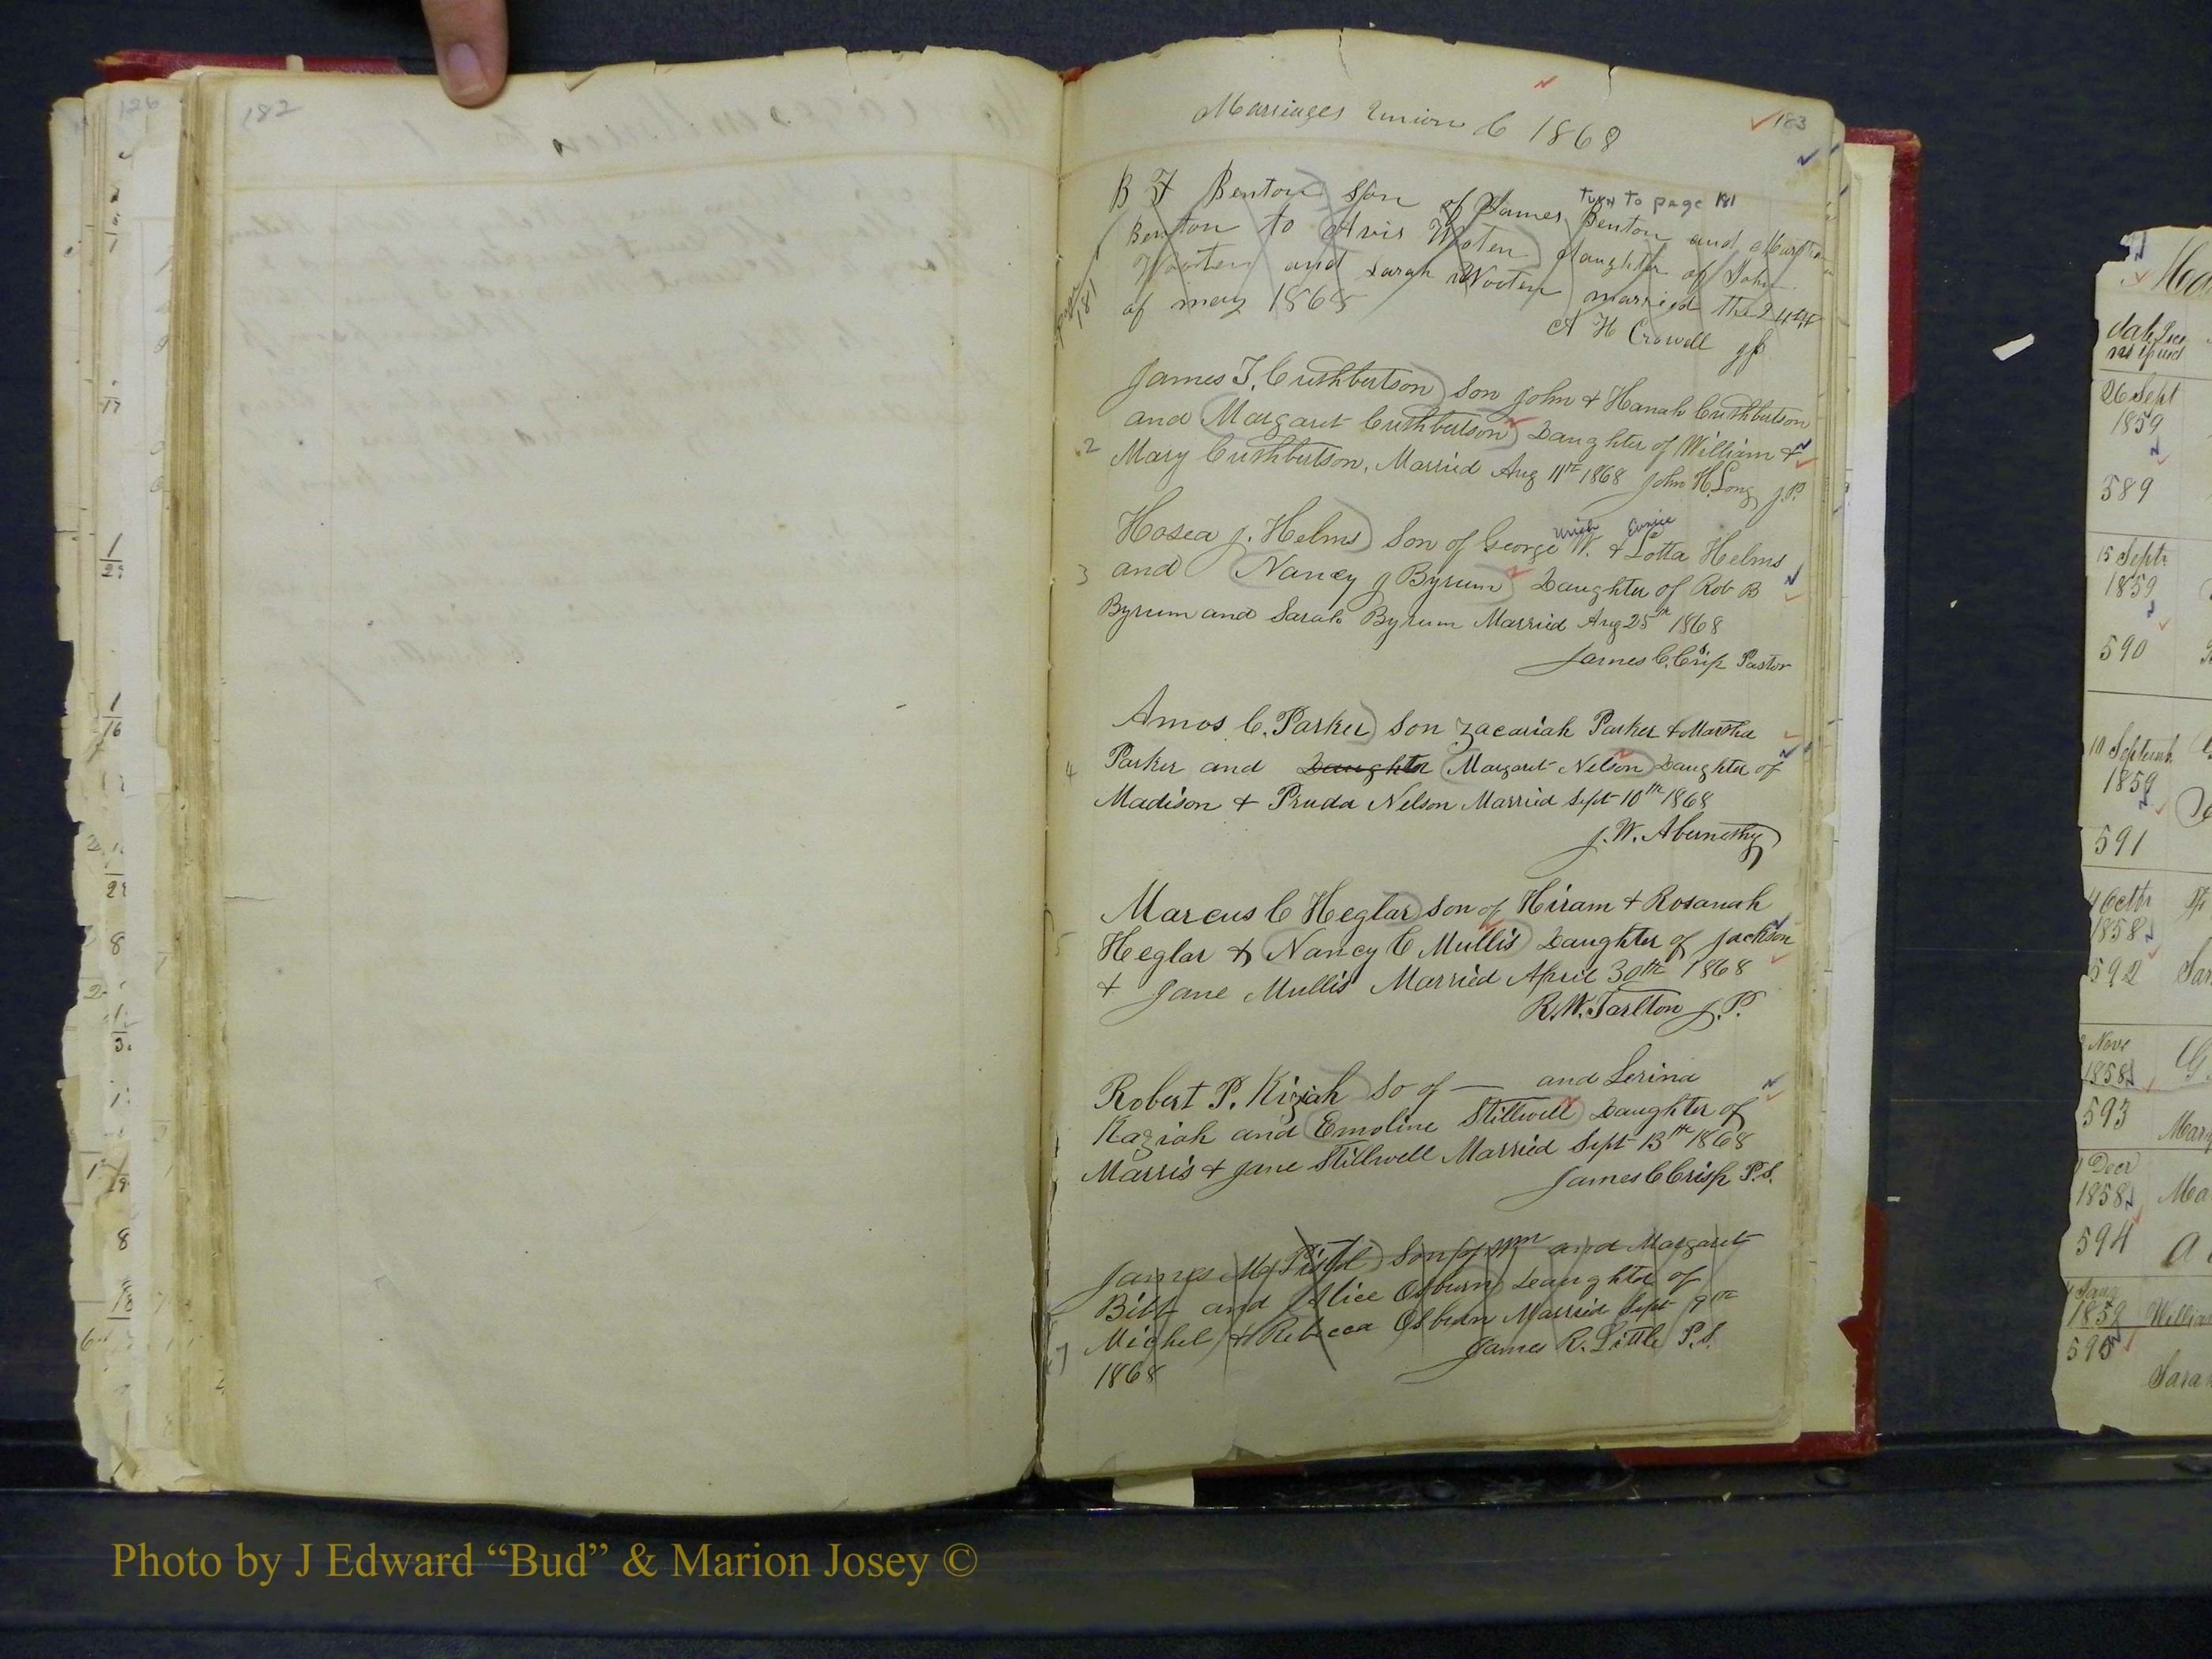 126
182
Marriages Union C 1868
183
Turn to page 181
B F Benton Son of James Benton and Martha
Benton to Avis Wooten daughter of John
Wooten and Sarah Wooten married the 24th
of may 1868
page 181
A H Crowell jp
James T. Cuthbertson Son John & Hanah Cuthbertson
and Margaret Cuthbertson Daughter of William &
2
Mary Cuthbertson, Married Aug 11th 1868 John H. Long J.P.
Urich Eunice
Hosea J. Helms Son of George W. & Lotta Helms
3 and Nancy J Byrum Daughter of Rob B
Byrum and Sarah Byrum Married Aug 25th 1868
James C. Crisp Pastor
Amos C. Parker Son Zacariah Parker & Martha
4 Parker and Daughter Margaret Nelson Daughter of
Madison & Pruda Nelson Married Sept 10th 1868
J. W. Abernethy
Marcus C Heglar Son of Hiram & Rosanah
5 Heglar & Nancy C Mullis Daughter of Jackson
& Jane Mullis Married April 30th 1868
R. W. Tarlton J.P.
Robert P. Kiziah So of — and Serina
Kaziah and Emoline Stillwell Daughter of
Marris & Jane Stillwell Married Sept 13th 1868
James C Crisp P.S.
James Son of Wm and Margaret
and Alice Osburn Daughter of
7 Michel & Rebecca Osburn Married Sept 9th
1868 James R. Little P.S.
26 Sept
1859
589
15 Septr
1859
590
1859
591
4 Octbr
1858
592
Nove
1858
593
1 Decr
1858
594
1859
595
Photo by J Edward “Bud” & Marion Josey ©